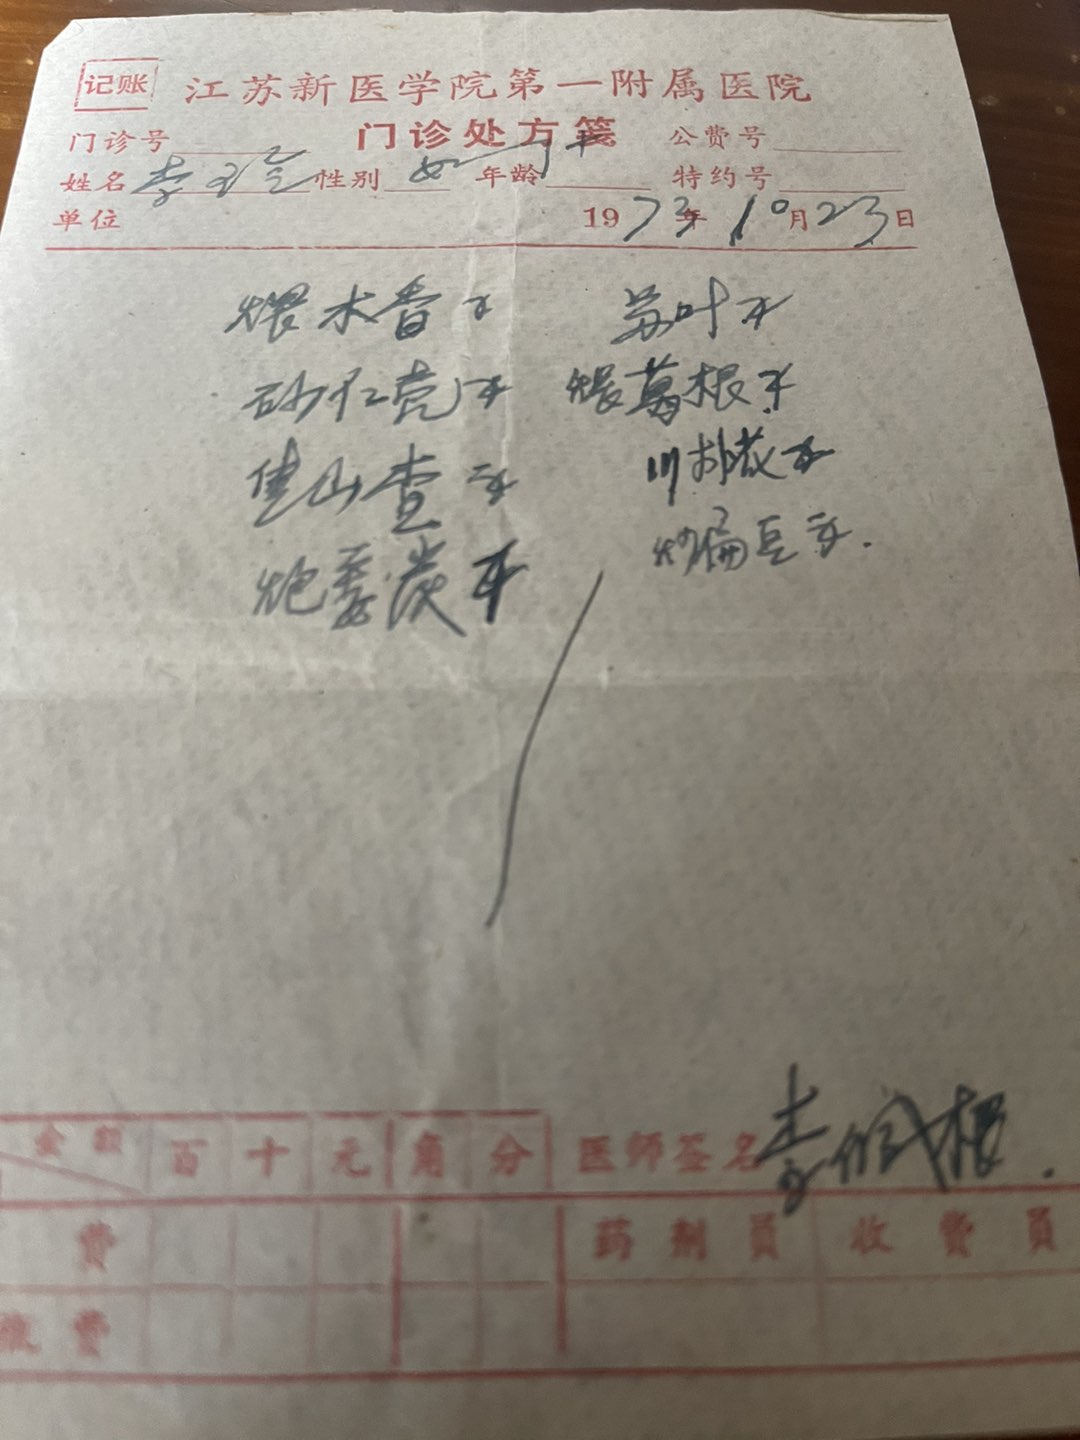 记账 江苏新医学院第一附属医院
门诊号 门诊处方笺 公费号
姓名 李玉玲 性别 女 年龄 特约号
单位 1973年10月23日
煨木香 苏叶
砂仁壳 煨葛根
焦山查 川朴花
炮姜炭 炒扁豆
金额 百 十 元 角 分 医师签名
费 药剂员 收费员
费